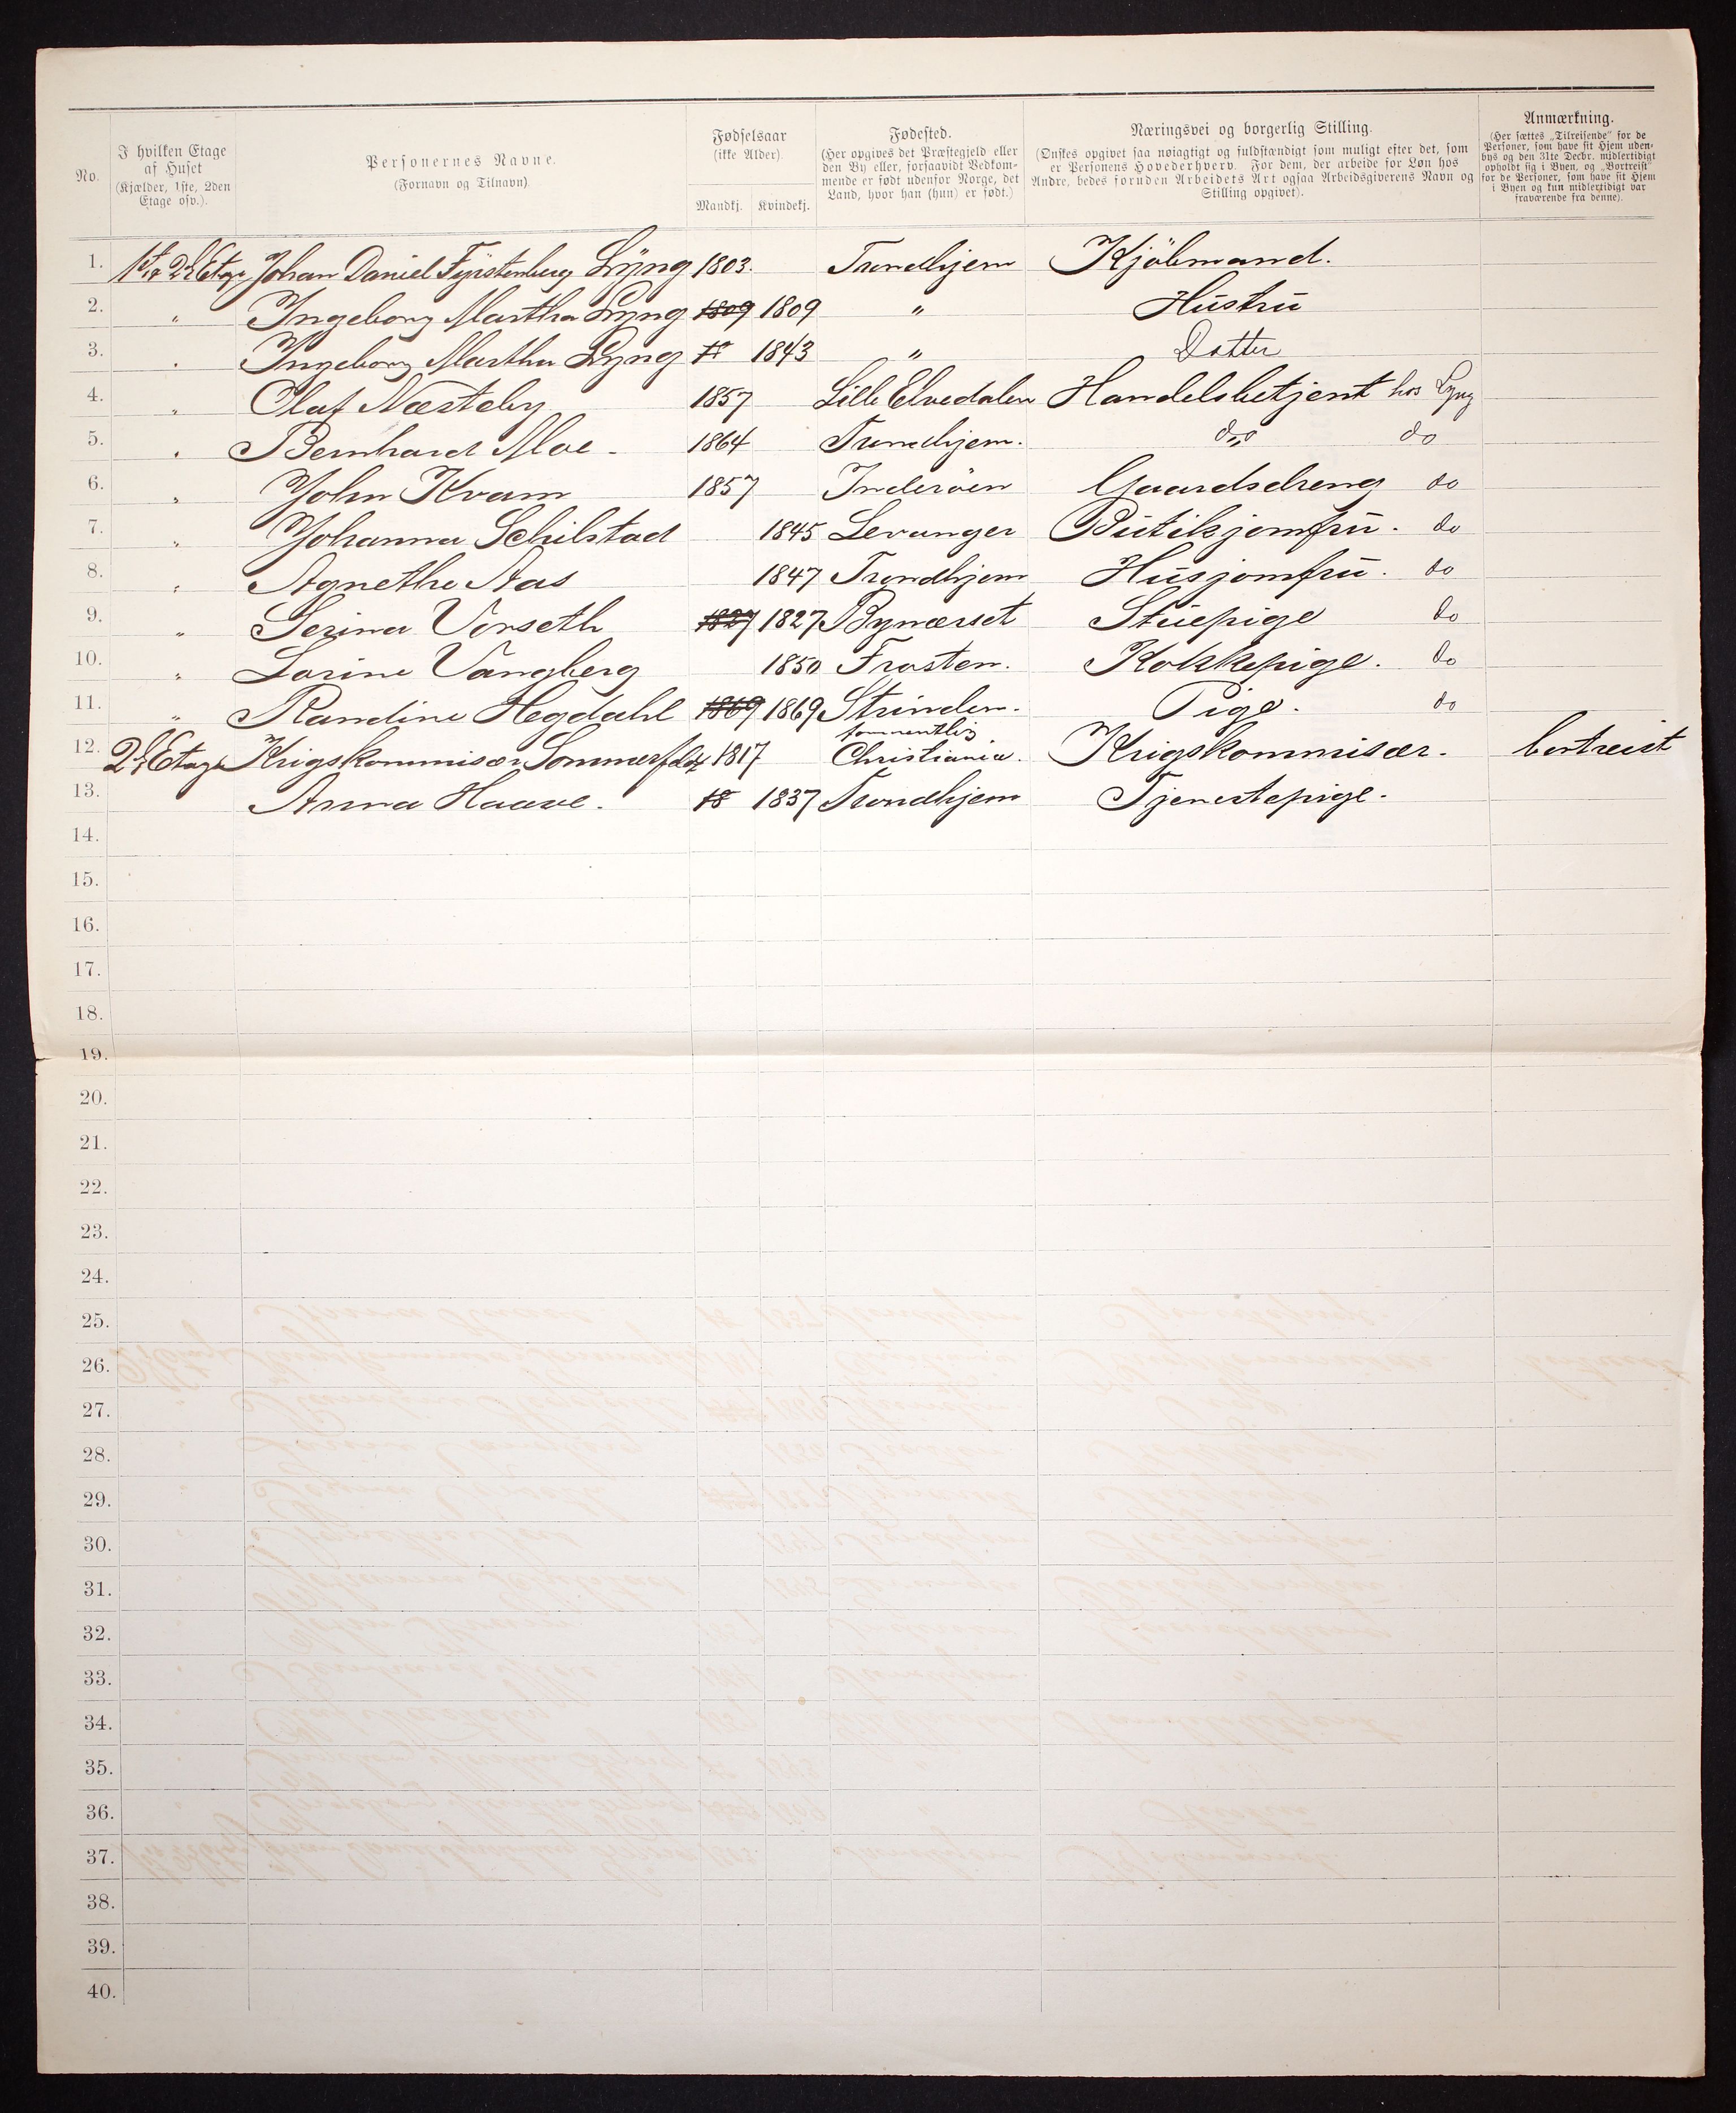 No.
I hvilken Etage
af Huset
(Kjælder, 1ste, 2den
Etage osv.).
Personernes Navne.
(Fornavn og Tilnavn).
Fødselsaar
(ikke Alder)
Mandkj. Kvindekj.
Fødested.
(Her opgives det Præstegjeld eller
den By eller, forsaavidt Vedkom-
mende er født udenfor Norge, det
Land, hvor han (hun) er født.)
Næringsvei og borgerlig Stilling.
(Ønskes opgivet saa nøiagtigt og fuldstændigt som muligt efter det, som
er Personens Hovederhverv. For dem, der arbeide for Løn hos
Andre, bedes foruden Arbeidets Art ogsaa Arbeidsgiverens Navn og
Stilling opgivet).
Anmærkning.
(Her sættes „Tilreisende" for de
Personer, som have sit Hjem uden-
bys og den 31te Decbr. midlertidigt
opholdt sig i Byen, og „Bortreist"
for de Personer, som have sit Hjem
i Byen og kun midlertidigt var
fraværende fra denne).
1. 1st & 2d Etage Johan Daniel Fyrstenberg Lyng 1803. Trondhjem Kjöbmand.
2. " Ingeborg Martha Lyng 1809 1809 " Hustru
3. " Ingeborg Martha Lyng 18 1843 " Datter
4. " Olaf Næsteby 1857 Lille Elvedalen Handelsbetjent hos Lyng
5. " Bernhard Moe - 1864 Trondhjem. do do
6. " John Kvam 1857 Inderöen Gaardsdreng do
7. " Johanna Schilstad 1845 Levanger Butikjomfru. do
8. " Agnethe Aas 1847 Trondhjem Husjomfru. do
9. " Serina Vorseth 1827 1827 Bynæsset Stuepige do
10. " Lorine Vangberg 1850 Frosten. Kokkepige. do
11. " Randine Hegdahl 1869 1869 Strinden. Pige. do
12. 2d Etage Krigskommisær Sommerfeldt 1817 Christiania. Krigskommisær. bortreist
13. Anna Haave. 18 1837 Trondhjem Tjenestepige.
14.
15.
16.
17.
18.
19.
20.
21.
22.
23.
24.
25.
26.
27.
28.
29.
30.
31.
32.
33.
34.
35.
36.
37.
38.
39.
40.